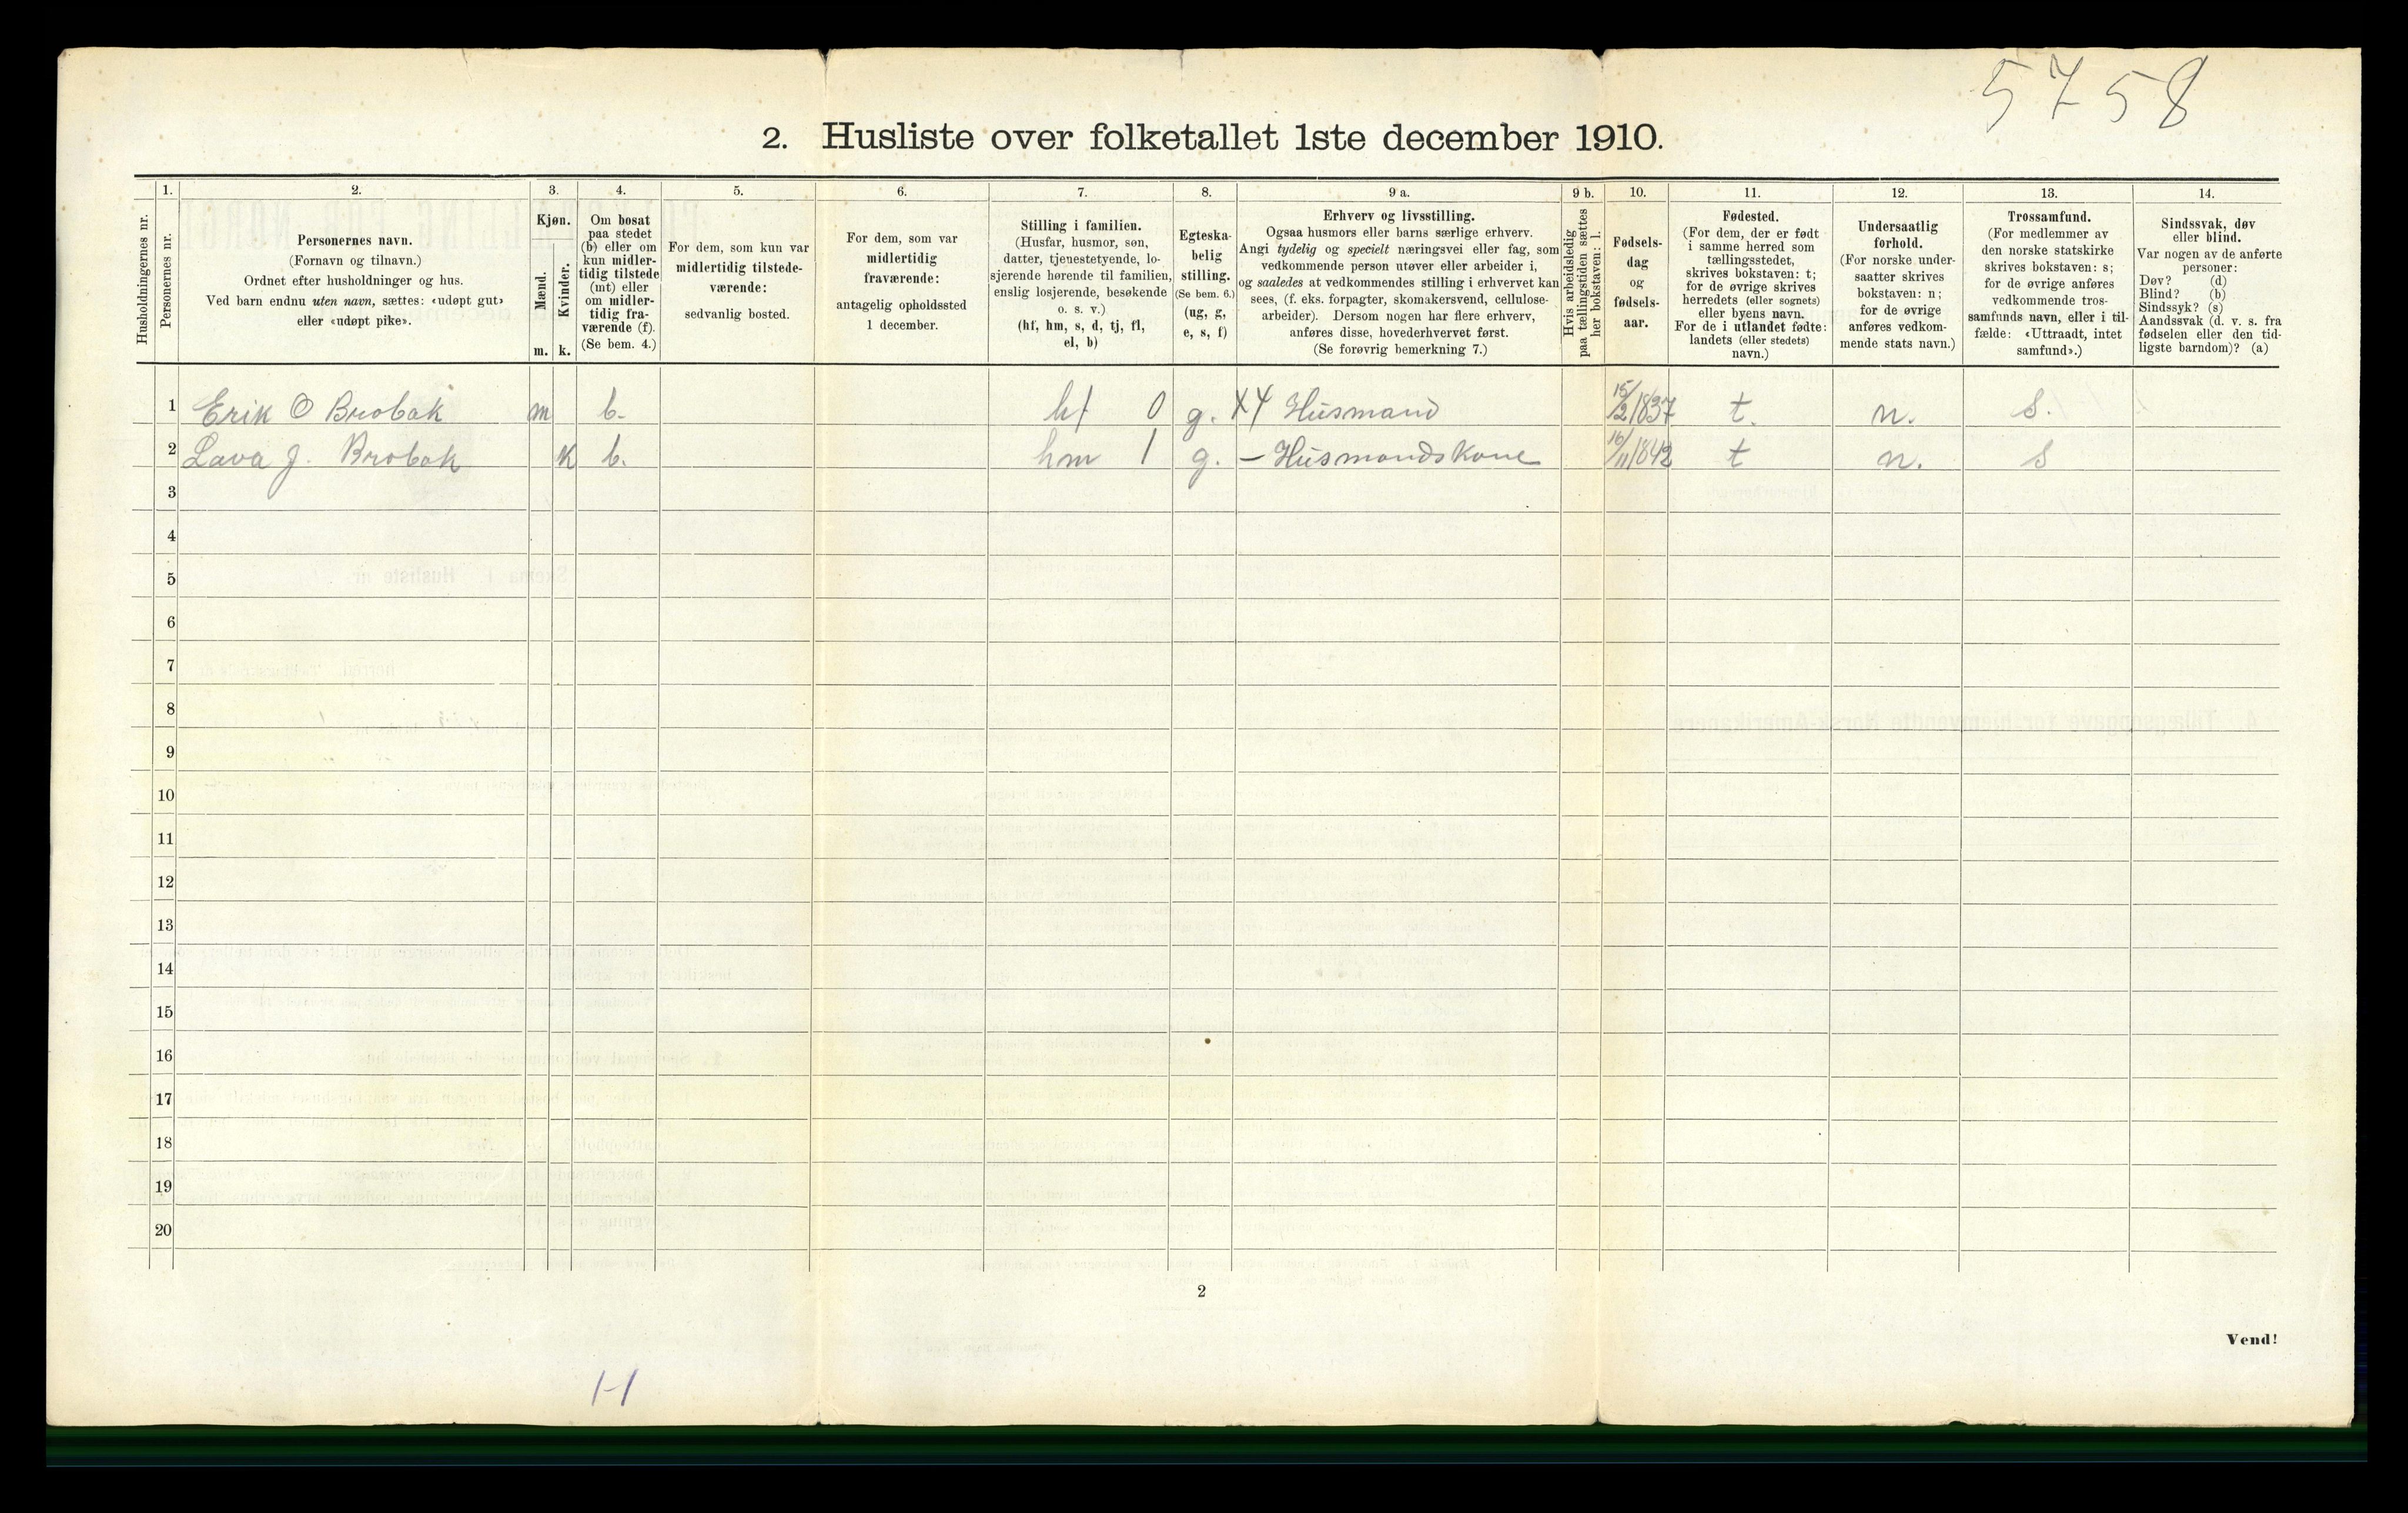 5758
2. Husliste over folketallet 1ste december 1910.
1. 2. 3. 4. 5. 6. 7. 8. 9 a. 9 b. 10. 11. 12. 13. 14.
Husholdningernes nr.
Personernes nr.
Personernes navn.
(Fornavn og tilnavn.)
Ordnet efter husholdninger og hus.
Ved barn endnu uten navn, sættes: «udøpt gut»
eller «udøpt pike».
Kjøn.
Mænd.
Kvinder.
m. k.
Om bosat
paa stedet
(b) eller om
kun midler-
tidig tilstede
(mt) eller
om midler-
tidig fra-
værende (f).
(Se bem. 4.)
For dem, som kun var
midlertidig tilstede-
værende:
sedvanlig bosted.
For dem, som var
midlertidig
fraværende:
antagelig opholdssted
1 december.
Stilling i familien.
(Husfar, husmor, søn,
datter, tjenestetyende, lo-
sjerende hørende til familien,
enslig losjerende, besøkende
o. s. v.)
(hf, hm, s, d, tj, fl,
el, b)
Egteska-
belig
stilling.
(Se bem. 6.)
(ug, g,
e, s, f)
Erhverv og livsstilling.
Ogsaa husmors eller barns særlige erhverv.
Angi tydelig og specielt næringsvei eller fag, som
vedkommende person utøver eller arbeider i,
og saaledes at vedkommendes stilling i erhvervet kan
sees, (f. eks. forpagter, skomakersvend, cellulose-
arbeider). Dersom nogen har flere erhverv,
anføres disse, hovederhvervet først.
(Se forøvrig bemerkning 7.)
Hvis arbeidsledig
paa tællingstiden sættes
her bokstaven: l.
Fødsels-
dag
og
fødsels-
aar.
Fødested.
(For dem, der er født
i samme herred som
tællingsstedet,
skrives bokstaven: t;
for de øvrige skrives
herredets (eller sognets)
eller byens navn.
For de i utlandet fødte:
landets (eller stedets)
navn.)
Undersaatlig
forhold.
(For norske under-
saatter skrives
bokstaven: n;
for de øvrige
anføres vedkom-
mende stats navn.)
Trossamfund.
(For medlemmer av
den norske statskirke
skrives bokstaven: s;
for de øvrige anføres
vedkommende tros-
samfunds navn, eller i til-
fælde: «Uttraadt, intet
samfund».)
Sindssvak, døv
eller blind.
Var nogen av de anførte
personer:
Døv? (d)
Blind? (b)
Sindssyk? (s)
Aandssvak (d. v. s. fra
fødselen eller den tid-
ligste barndom)? (a)
1 Erik O Brobak m b. hf 0 g. X4 Husmand 15/2 1837 t. n. s.
2 Lava J. Brobak k b. hm 1 g. – Husmandskone 16/11 1842 t n. s
3
4
5
6
7
8
9
10
11
12
13
14
15
16
17
18
19
20
2
Vend!